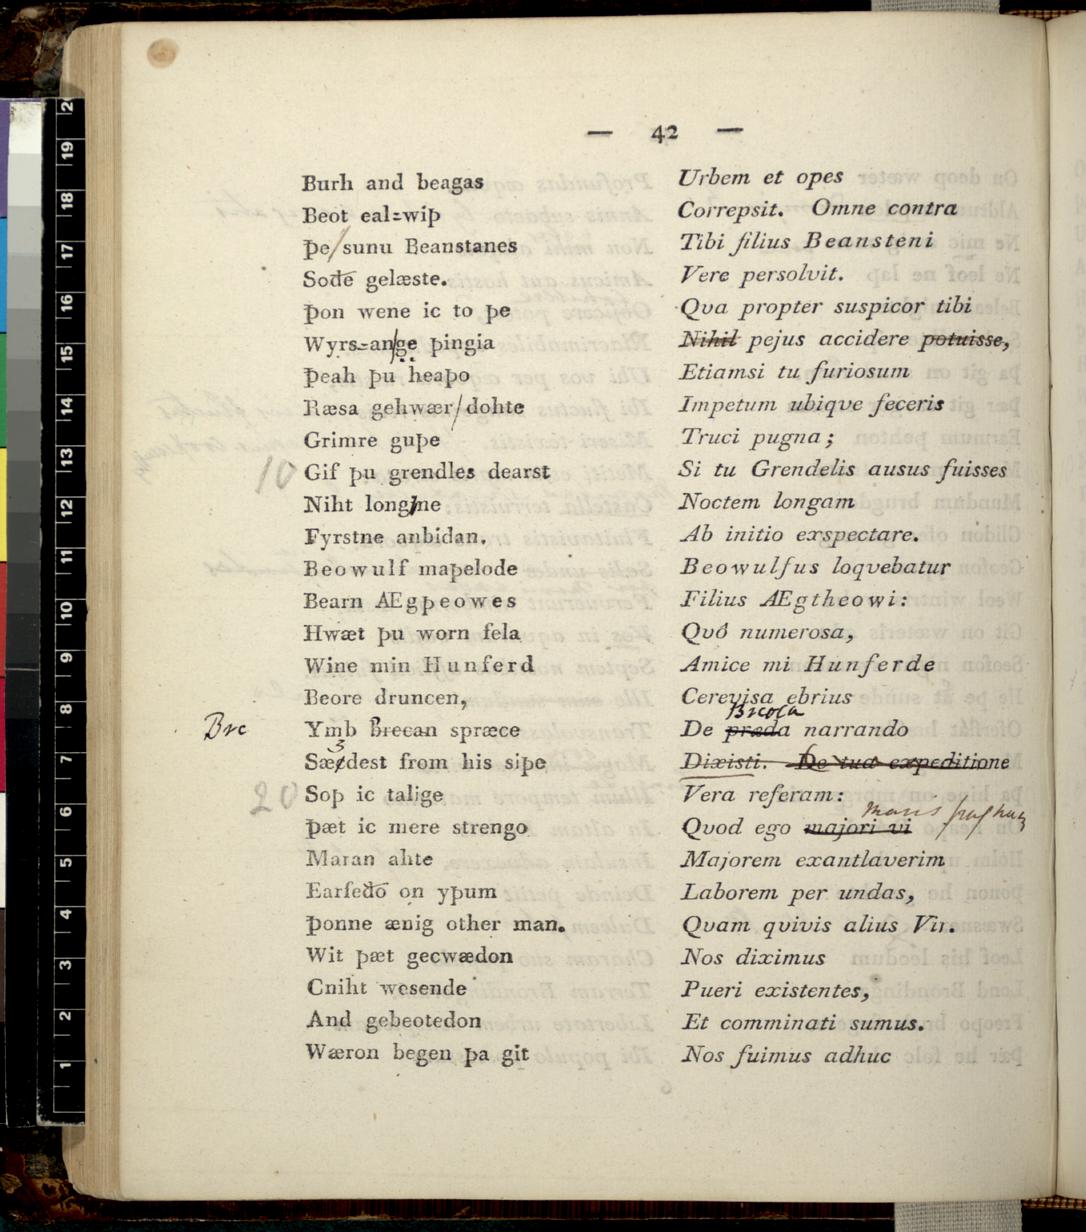 — 42 —
Burh and beagas
Beot eal=wiþ
þe/sunu Beanstanes
Sode gelæste.
þon wene ic to þe
Wyrs=an/ge þingia
þeah þu heaþo
Ræsa gehwær/dohte
Grimre guþe
10 Gif þu grendles dearst
Niht longne
Fyrstne anbidan.
Beowulf maþelode
Bearn ÆEgþeowes
Hwæt þu worn fela
Wine min Hunferd
Beore druncen,
Brc Ymb Breean spræce
Sædest from his siþe
20 Soþ ic talige
þæt ic mere strengo
Maran ahte
Earfedo on yþum
þonne ænig other man.
Wit þæt gecwædon
Cniht wesende
And gebeotedon
Wæron begen þa git
Urbem et opes
Correpsit. Omne contra
Tibi filius Beansteni
Vere persolvit.
Qva propter suspicor tibi
Nihil pejus accidere potuisse,
Etiamsi tu furiosum
Impetum ubique feceris
Truci pugna;
Si tu Grendelis ausus fuisses
Noctem longam
Ab initio exspectare.
Beowulfus loqvebatur
Filius ÆEgtheowi:
Qvó numerosa,
Amice mi Hunferde
Cerevisa ebrius
Breoca
De præda narrando
Dixisti. De tua expeditione
Vera referam:
maris
Quod ego majori vi
Majorem exantlaverim
Laborem per undas,
Quam qvivis alius Vir.
Nos diximus
Pueri existentes,
Et comminati sumus.
Nos fuimus adhuc